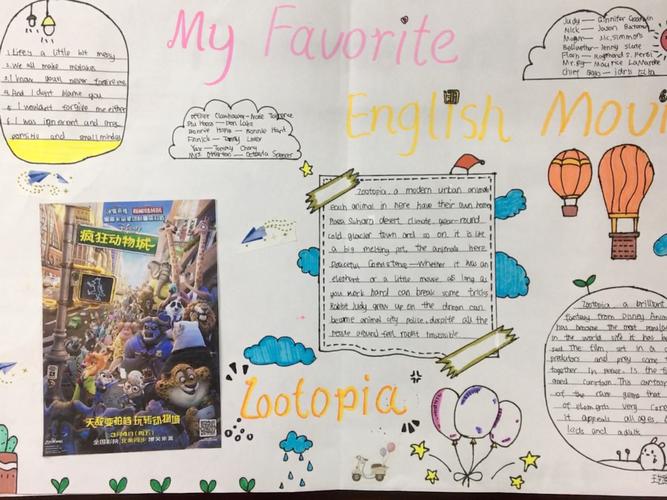 My Favorite
English Movi
1. Life's a little bit messy
2. We all make mistakes
3. I know you'll never forgive me
4. And I don't blame you
5. I wouldn't forgive me either
6. I was ignorant and
and small minded
Officer Clawhauser-Nate Torrence
Don Lake
Bonnie Hopps - Bonnie Hunt
Finnick - Tommy Lister
Yax - Tommy Chong
Mrs. Otterton - Octavia Spencer
Judy - Ginnifer Goodwin
Nick - Jason Bateman
J.K. Simmons
Bellwether - Jenny Slate
Raymond S. Persi
Mr. Big - Maurice LaMarche
Chief Bogo - Idris Elba
Zootopia, a modern urban animal
each animal in here have their own home
Sahara desert climate, year-round
cold glacier town and so on, it is like
a big melting pot, the animals here
Peaceful Coexistence - Whether it is an
elephant or a little mouse as long as
you work hard can break some tricks
Rabbit Judy grew up on the dream can
become animal city police, despite all the
people around feel rabbit impossible
疯狂动物城
天敌变拍档 玩转动物城
3月4日
Zootopia
Zootopia a brilliant
fantasy from Disney Anima
has become the most popular
in the world since it has b
The film, set in a
predators and prey come
together in peace. Is the f
cartoon. This cartoon
of the
of elements very
it appeals all ages,
kids and adults